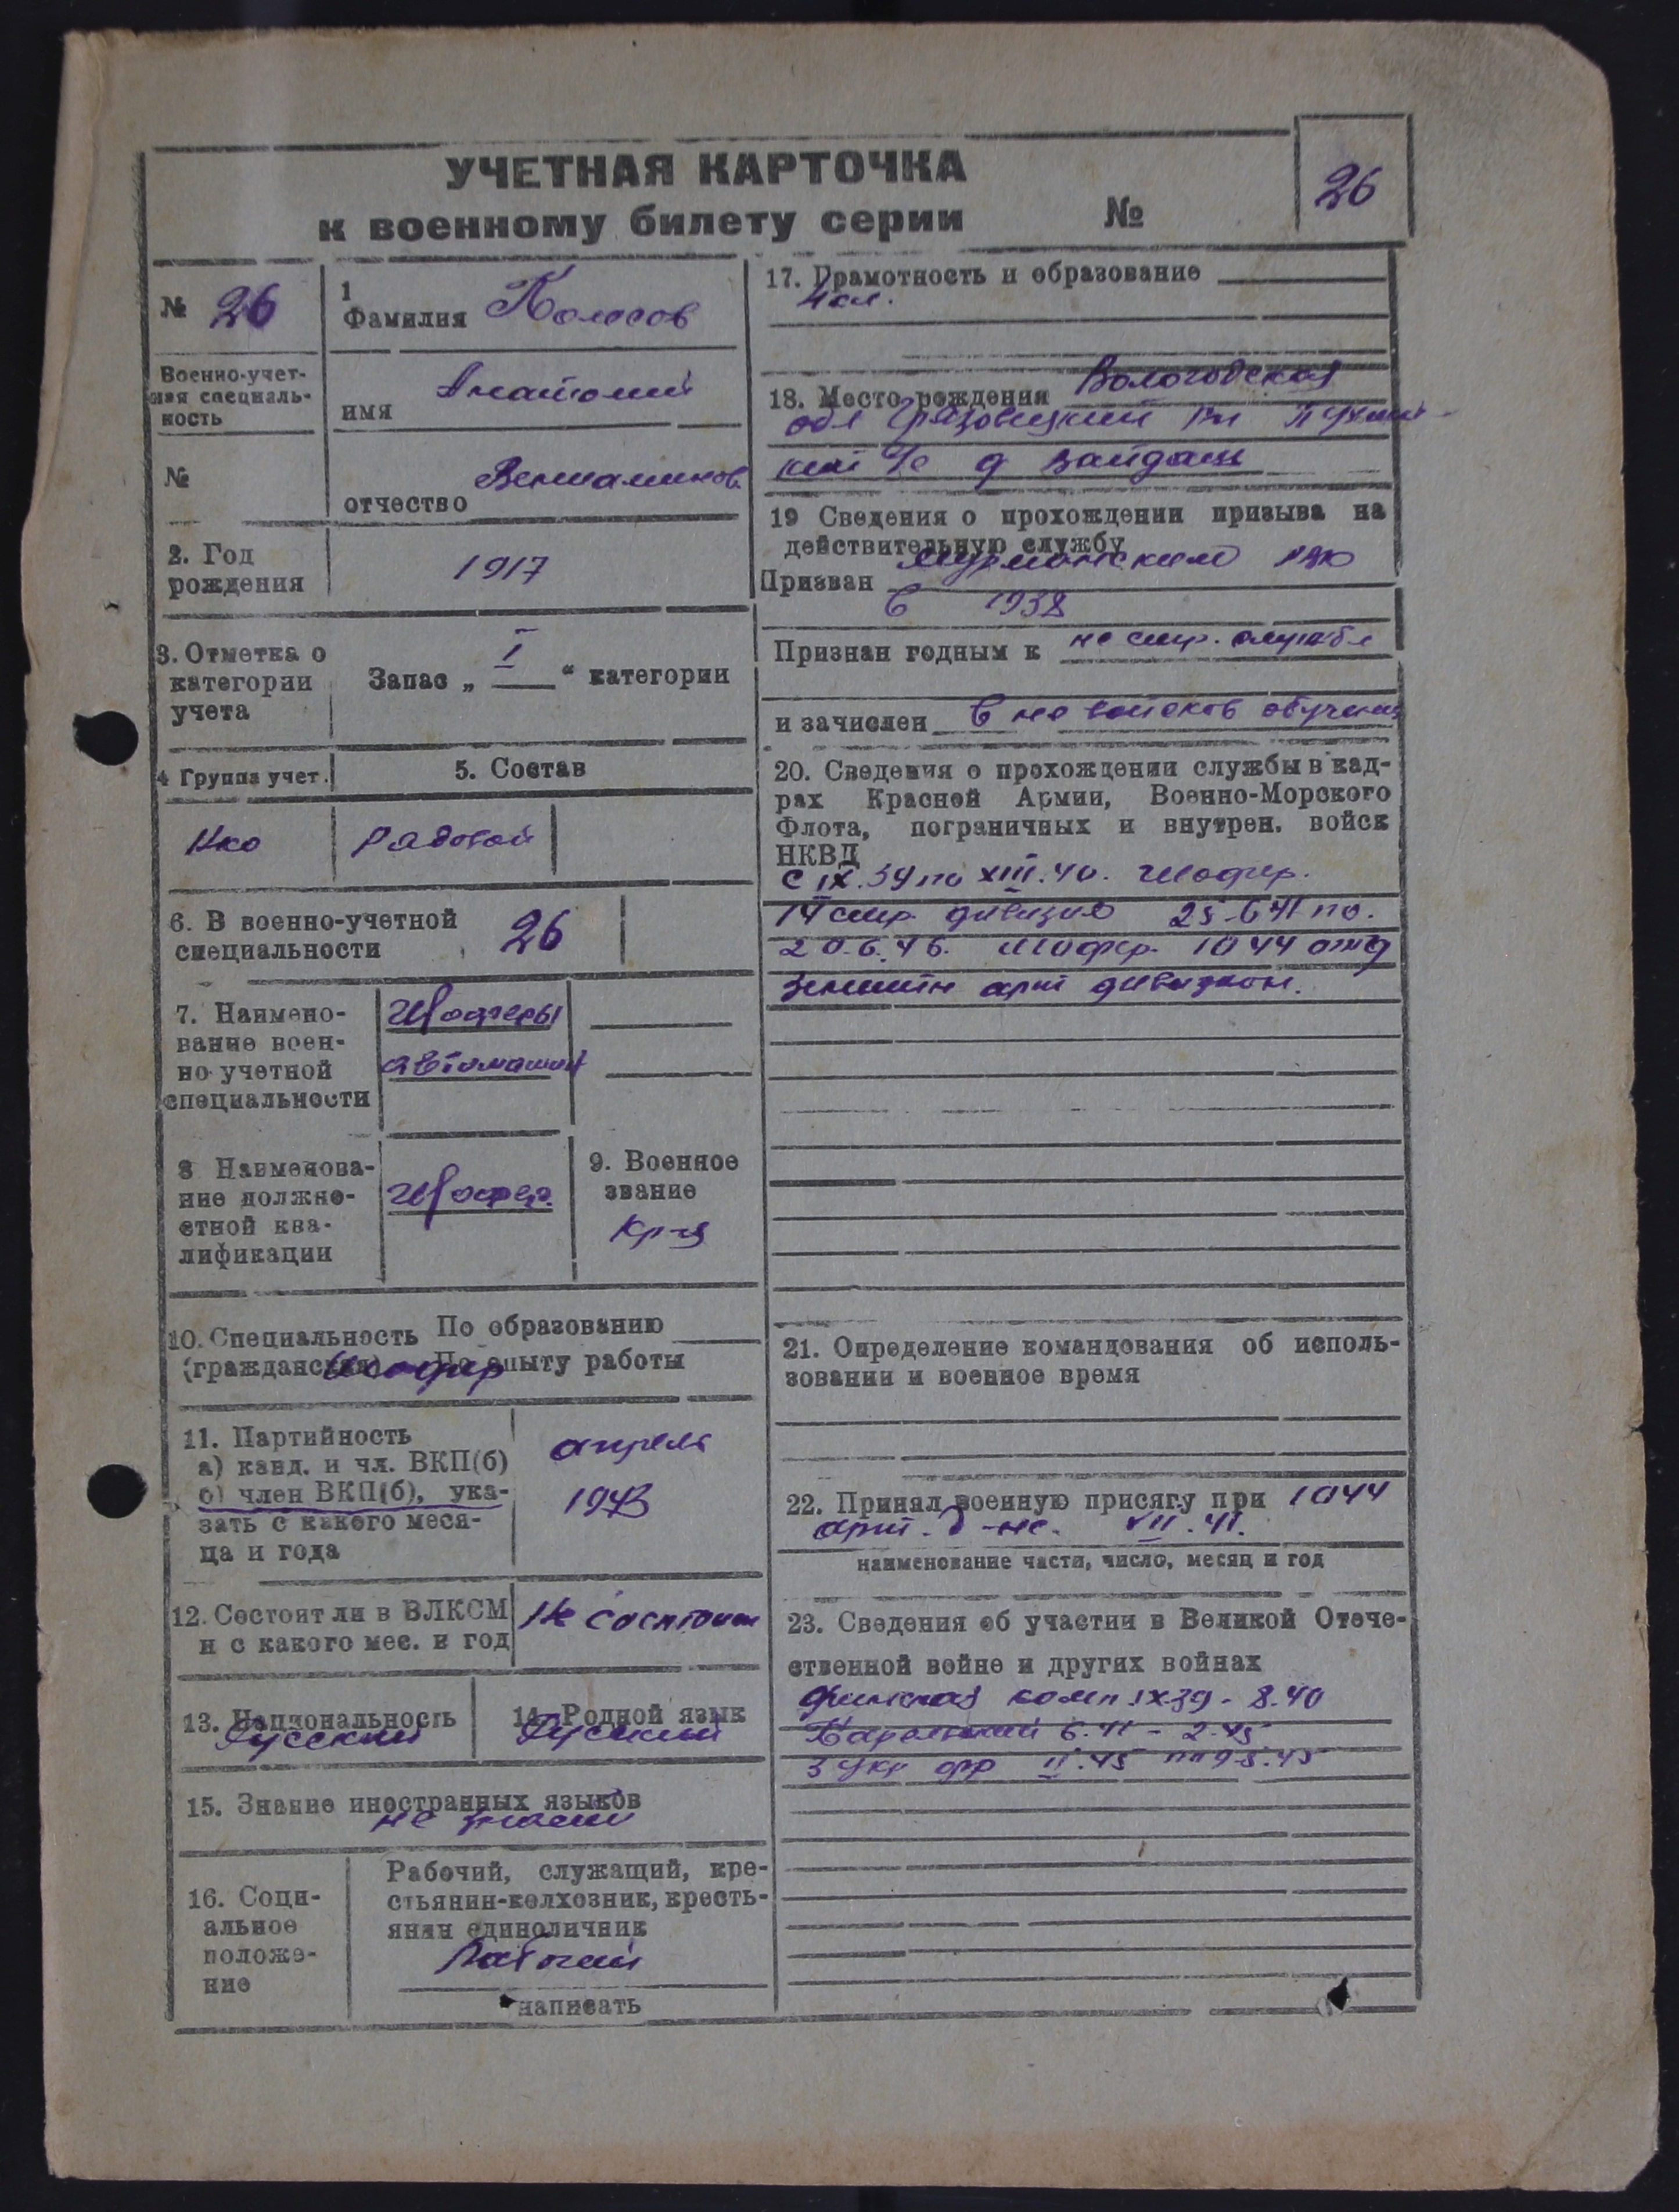 УЧЕТНАЯ КАРТОЧКА
к военному билету серии №
26
№ 26
Военно-учет-
ная специаль-
ность
№
1
Фамилия Колосов
имя Анатолий
отчество Вениаминов.
2. Год
рождения
1917
3. Отметка о
категории
учета
Запас „ I “ категории
4 Группа учет.
5. Состав
Рядовой
6. В военно-учетной
специальности
26
7. Наимено-
вание воен-
но-учетной
специальности
Шоферы
автомашин
8 Наименова-
ние должно-
стной ква-
лификации
Шофер.
9. Военное
звание
Кр-ц
10. Специальность По образованию
(гражданская) По опыту работы
Шофер
11. Партийность
а) канд. и чл. ВКП(б)
б) член ВКП(б), ука-
зать с какого меся-
ца и года
апрель
1943
12. Состоит ли в ВЛКСМ
и с какого мес. и год
Не состоит
13. Национальность
Русский
14. Родной язык
Русский
15. Знание иностранных языков
не знает
16. Соци-
альное
положе-
ние
Рабочий, служащий, кре-
стьянин-колхозник, кресть-
янин единоличник
Рабочий
написать
17. Грамотность и образование
4 кл.
18. Место рождения Вологодская
обл Грязовецкий
д
19 Сведения о прохождении призыва на
действительную службу
Призван Мурманским
в 1938
Признан годным к не стр. службе
и зачислен в не войсков обучение
20. Сведения о прохождении службы в кад-
рах Красной Армии, Военно-Морского
Флота, пограничных и внутрен. войск
НКВД
с IX.39 по XIII.40. Шофер.
14 стр. дивизию 25-6 41 по.
20.6.46. Шофер. 1044 отд
зенитн арт дивизион.
21. Определение командования об исполь-
зовании и военное время
22. Принял военную присягу при 1044
арт. д-не. VII.41.
наименование части, число, месяц и год
23. Сведения об участии в Великой Отече-
ственной войне и других войнах
финская комп IX.39 - 8.40
Карельский 6.41 - 2.45
3 Укр фр II.45 по 9-5.45